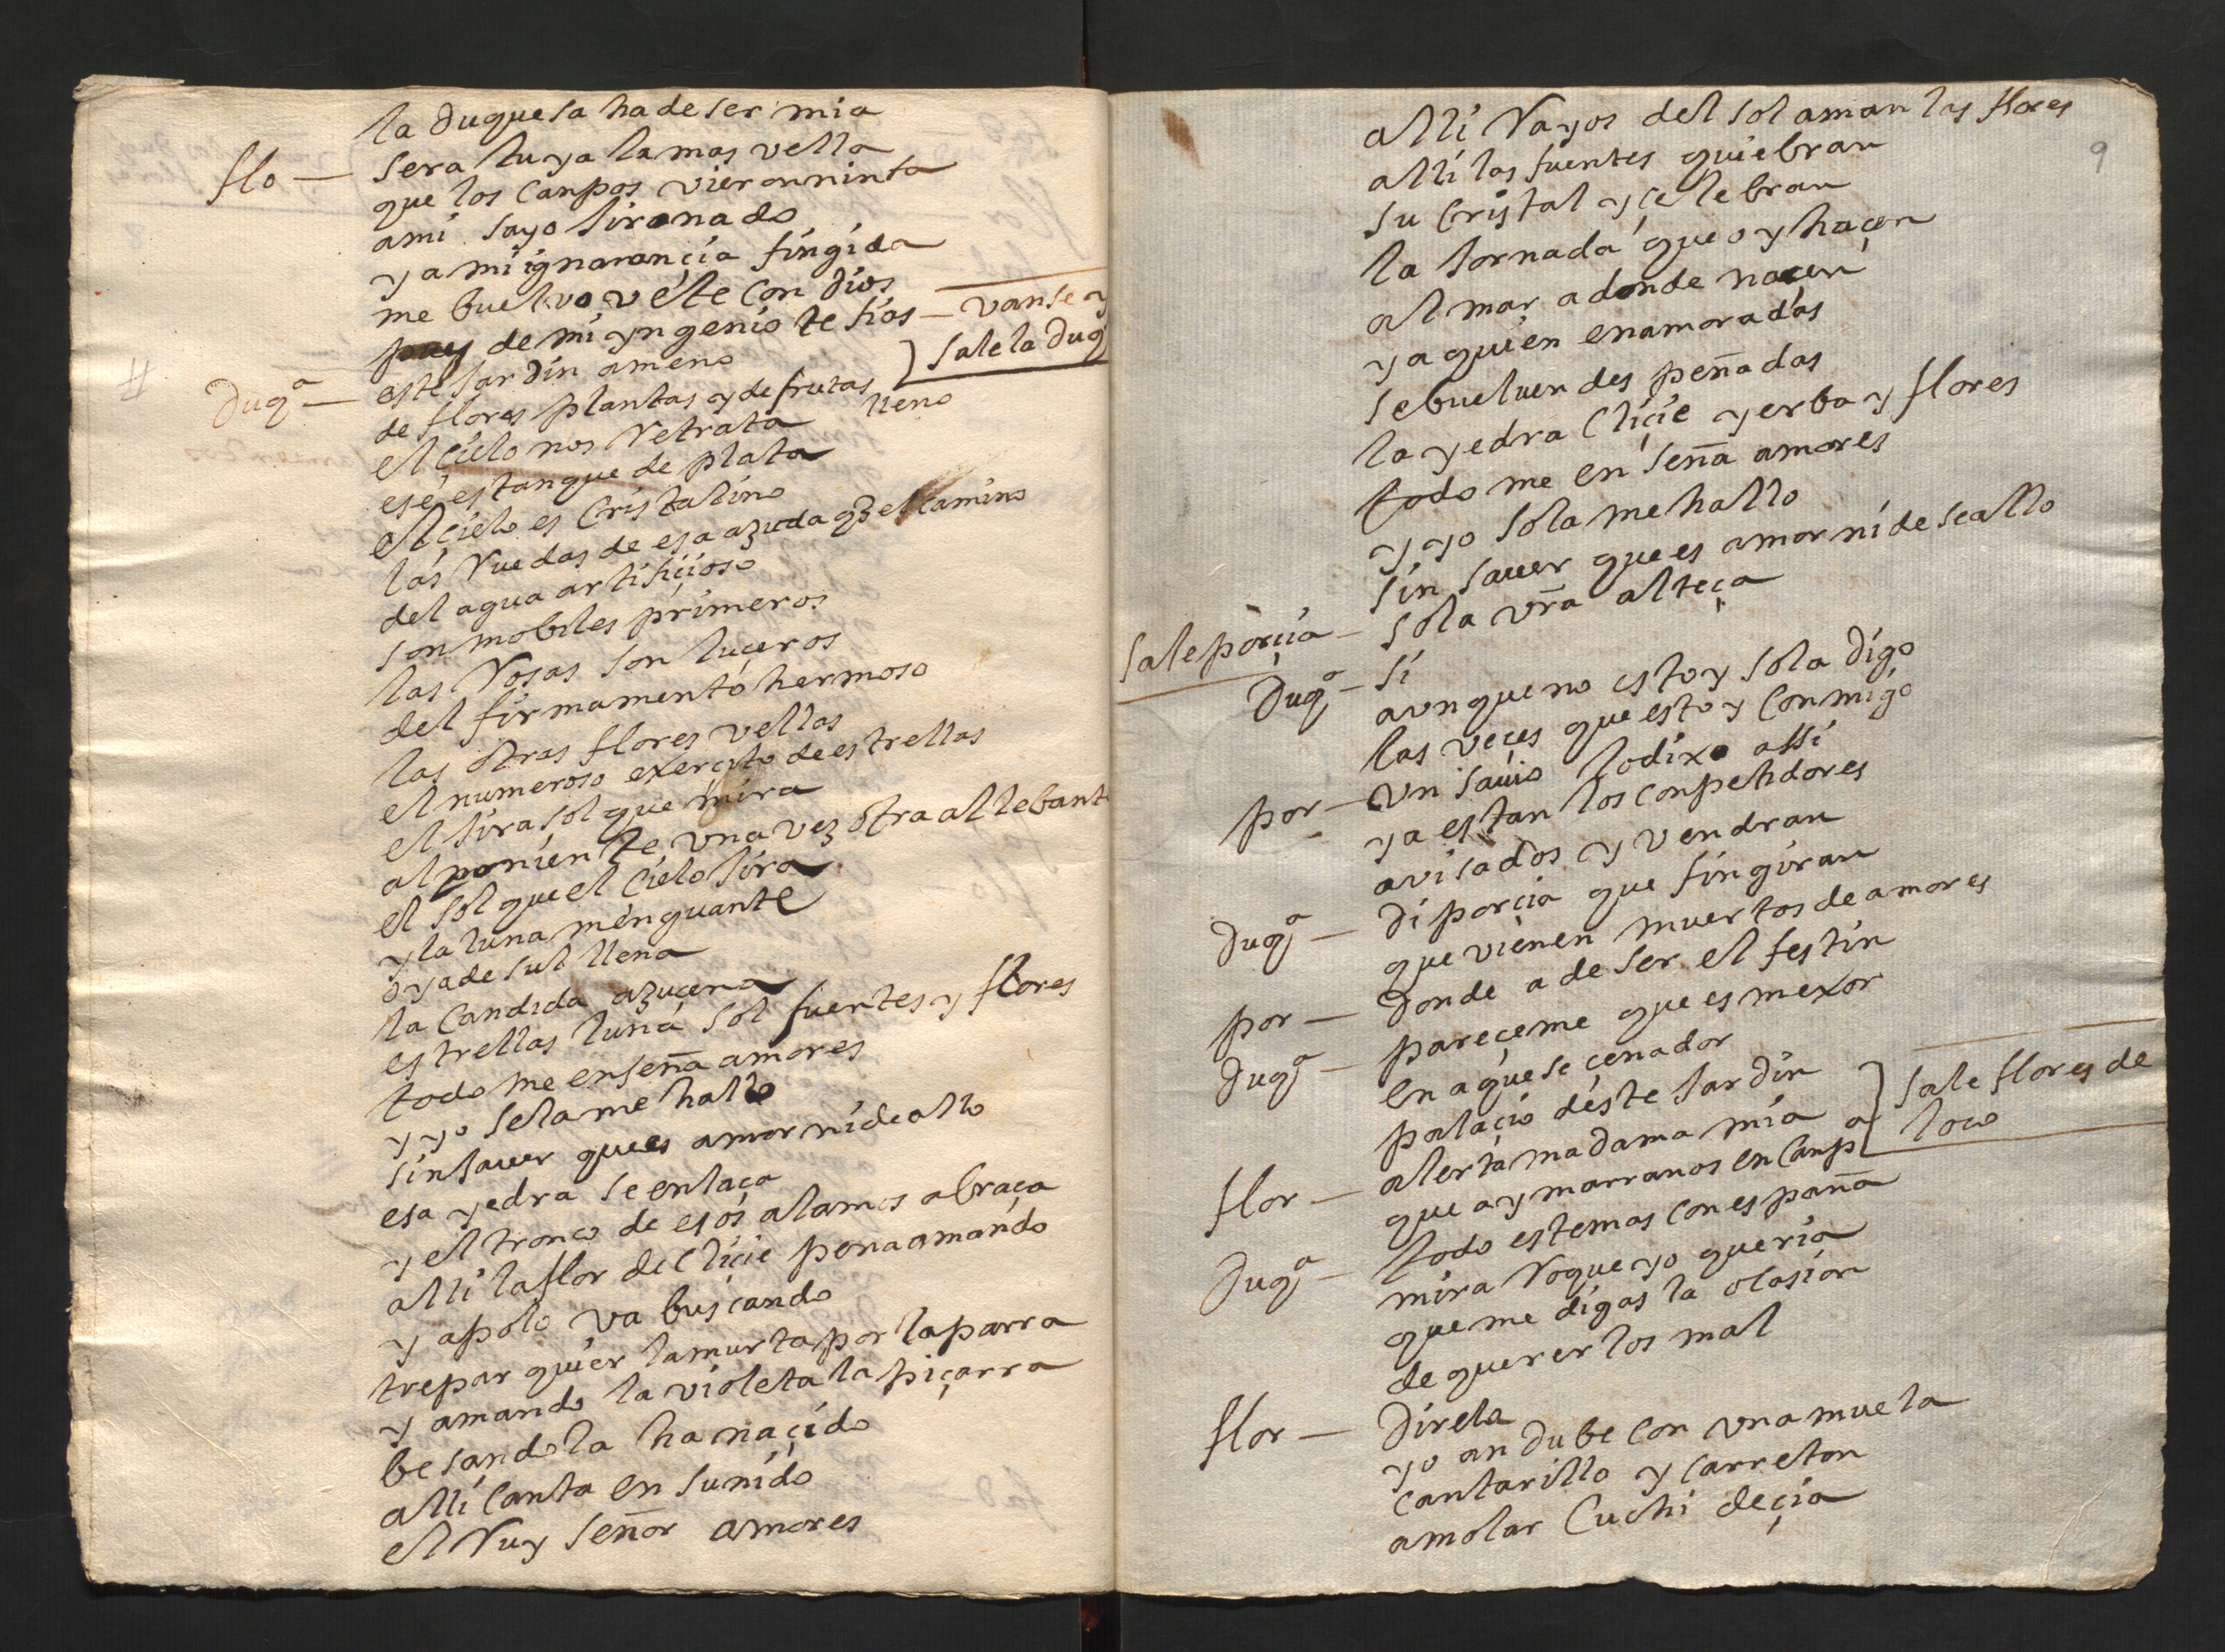 la duquesa ha de ser mia
flo — sera tuya la mas vella
que los canpos vieron ninfa
a mi sayo jironado
y a mi ignorançia fingida
me buelvo vete con dios
pues de mi yngenio te fias — vanse y
sale la Duqª
Duqª — este jardin ameno
de flores plantas y de frutas lleno
el cielo nos retrata
ese estanque de plata
el cielo es cristalino
las ruedas de esa azuda qe el camino
del agua artifiçioso
son mobiles primeros
las rosas son luçeros
del firmamento hermoso
las otras flores vellas
el numeroso exerçito de estrellas
el jirasol que mira
al poniente una vez otra al lebante
el sol que el cielo jira
y la luna menguante
o ya de sul llena
la candida azuçena
estrellas luna sol fuentes y flores
todo me enseña amores
y yo sola me hallo
sin sauer que es amor ni deallo
esa yedra se enlaça
y el tronco de esos alamos abraça
alli la flor de cliçie pena amando
y apolo va buscando
trepar quier la murta por la parra
y amando la violeta la piçarra
besandola ha naçido
alli canta en su nido
el ruy señor amores
9
alli rayos del sol aman las flores
alli las fuentes quiebran
su cristal y çelebran
la jornada que oy haçen
al mar a donde naçen
y a quien enamoradas
se buelven despeñadas
la yedra cliçie yerba y flores
todo me enseña amores
y yo sola me hallo
sin sauer que es amor ni deseallo
sale porçia — sola vrã alteça
Duqª — si
avnque no estoy sola digo
las veces que estoy conmigo
vn sauio lo dixo assi
por — ya estan los conpetidores
avisados y vendran
Duqª — di porçia que fingiran
que vienen muertos de amores
por — donde a de ser el festin
Duqª — pareçeme que es mexor
en aquese cenador
palaçio deste jardin
sale flores de
loco
flor — alerta madama mia
que ay marranos en canpaña
todo estemos con españa
Duqª — mira roque yo queria
que me digas la ocasion
de quererlos mal
flor — direla
yo andube con una muela
cantarillo y carreton
amolar cuchi deçia